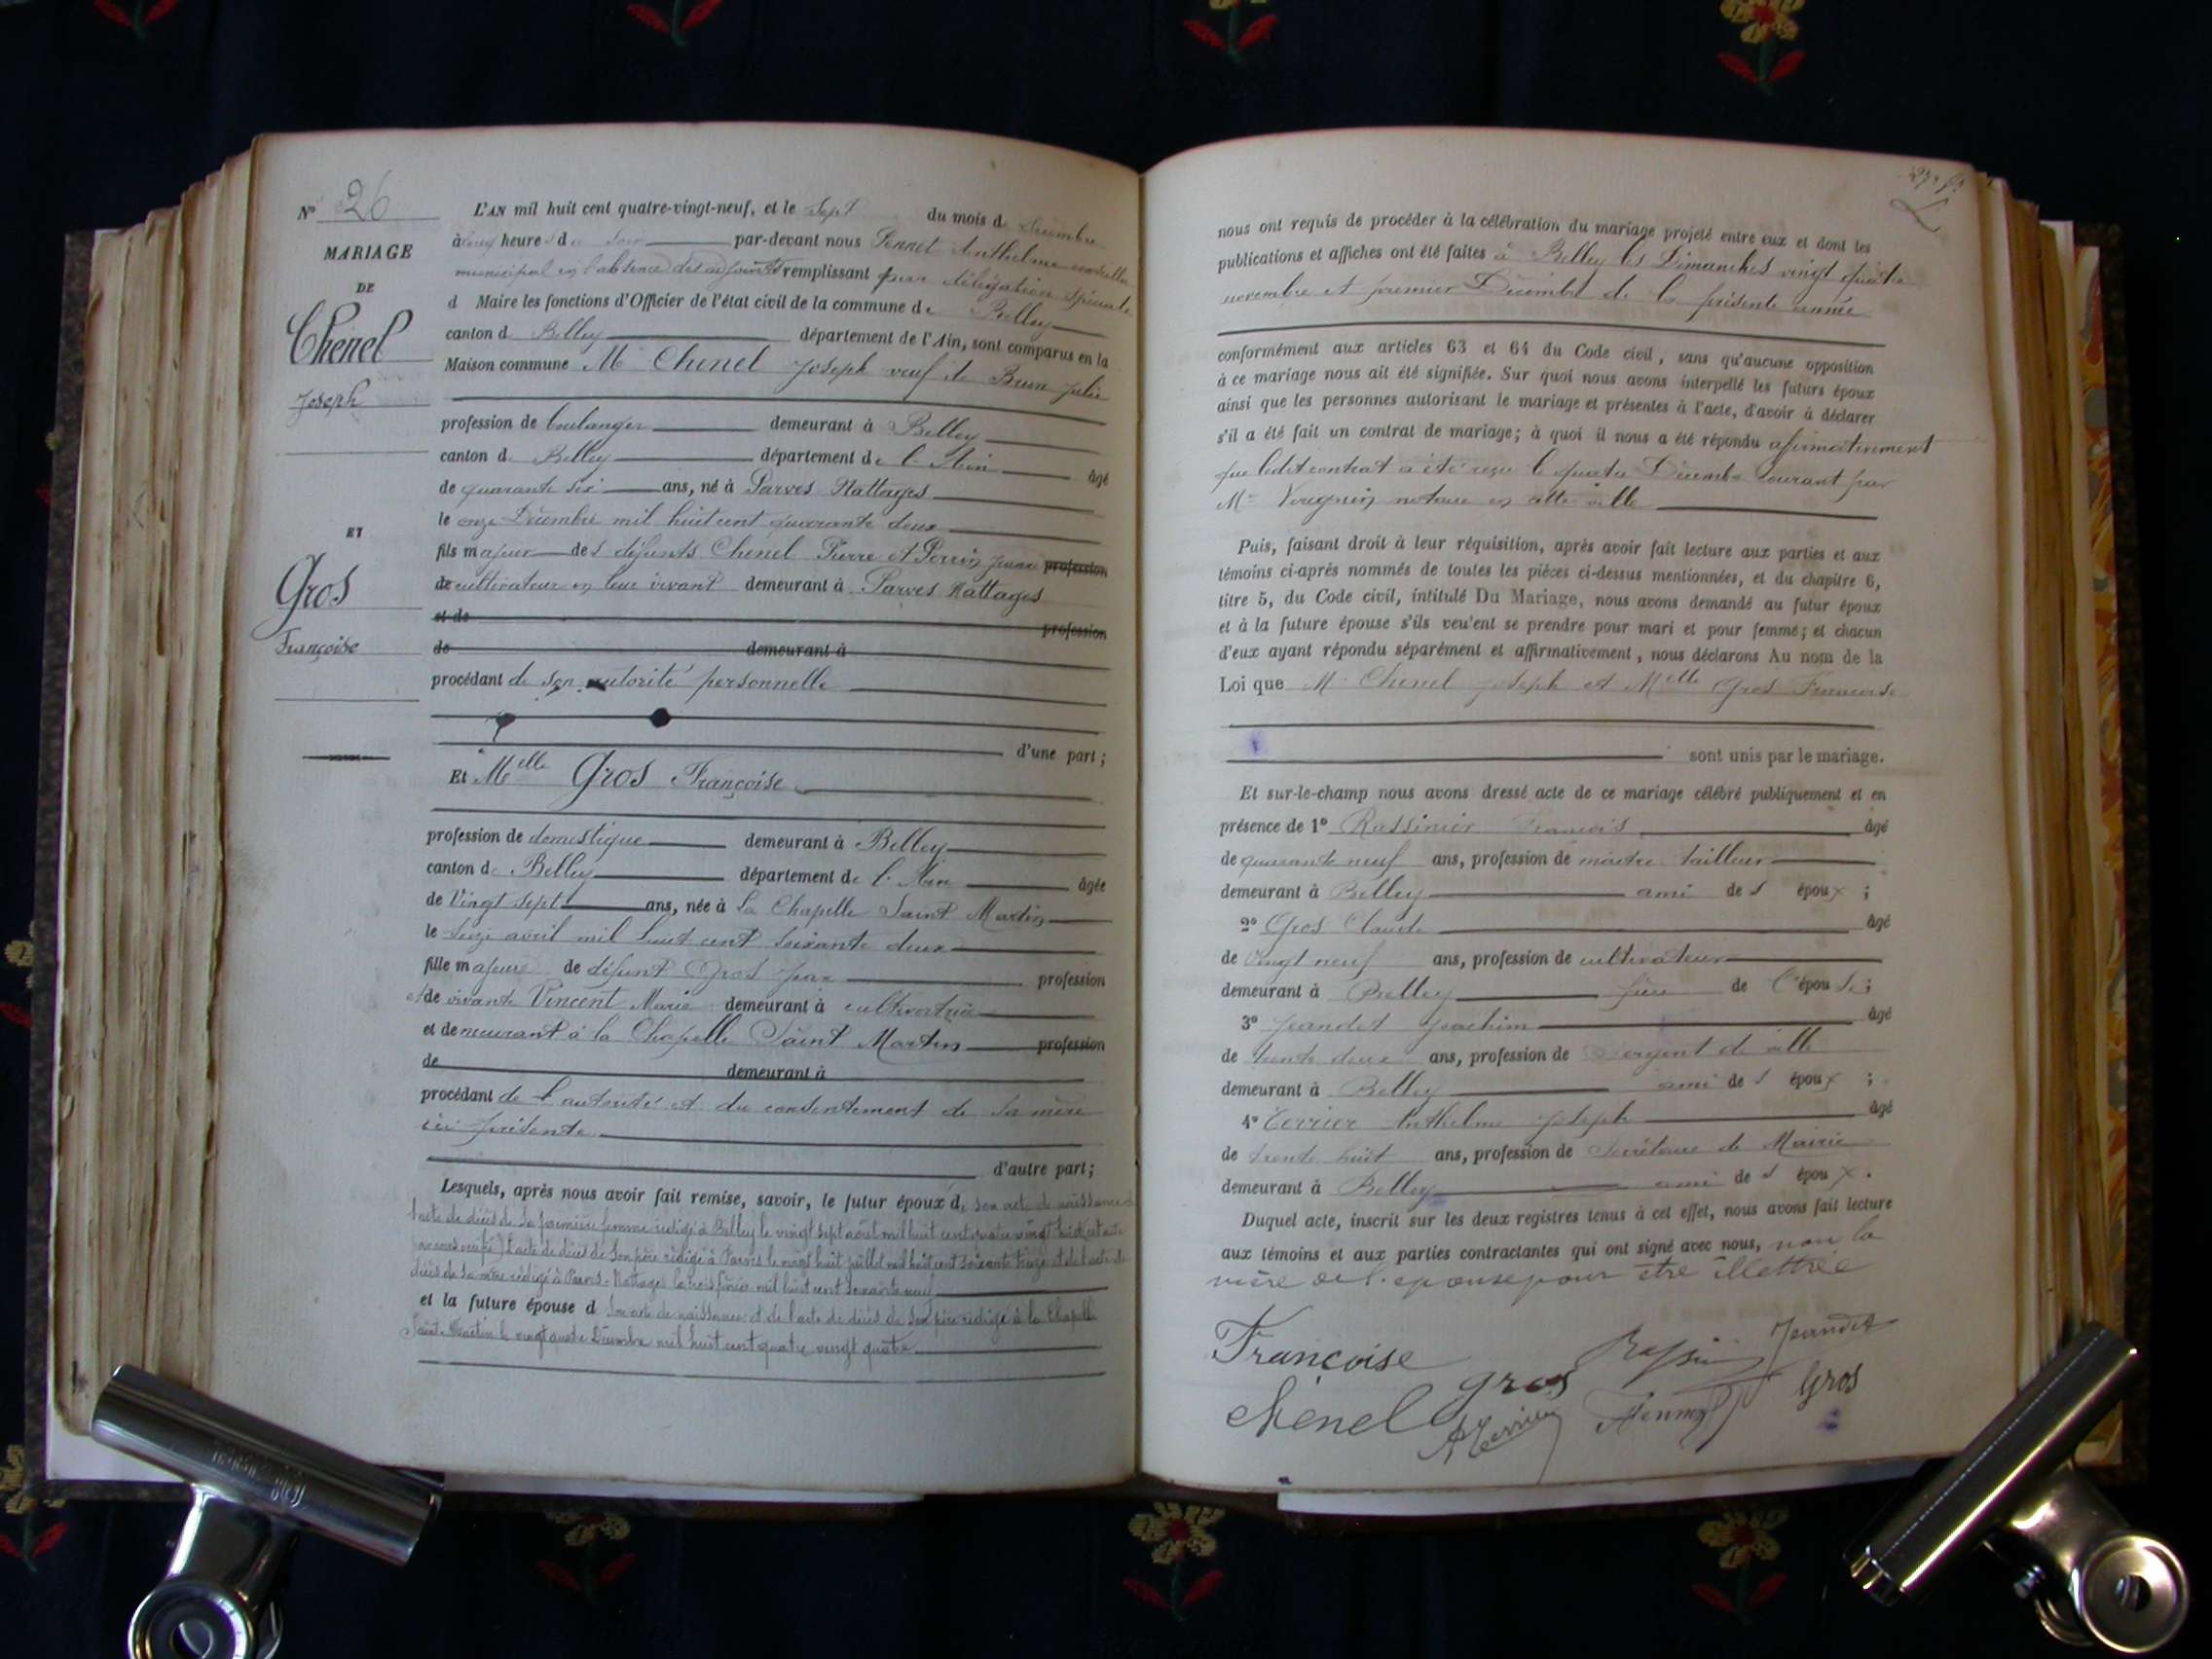 N° 26
MARIAGE
DE
Chenel
Joseph
ET
Gros
Françoise
L'AN mil huit cent quatre-vingt-neuf, et le Sept du mois de Décembre
à heures du soir par-devant nous Anthelme conseiller
municipal en l'absence des adjoints remplissant par délégation spéciale
d Maire les fonctions d'Officier de l'état civil de la commune de Belley
canton de Belley département de l'Ain, sont comparus en la
Maison commune Mr Chenel Joseph veuf de Brun Julie
profession de boulanger demeurant à Belley
canton de Belley département de l'Ain âgé
de quarante six ans, né à Parves Nattages
le onze Décembre mil huit cent quarante deux
fils majeur des défunts Chenel Pierre et Perrin Jeanne profession
de cultivateur en leur vivant demeurant à Parves Nattages
et de profession
de demeurant à
procédant de son autorité personnelle
d'une part ;
Et Melle Gros Françoise
profession de domestique demeurant à Belley
canton de Belley département de l'Ain âgée
de Vingt sept ans, née à La Chapelle Saint Martin
le Seize avril mil huit cent soixante deux
fille majeure de défunt Gros Jean profession
et de vivante Vincent Marie demeurant à cultivatrice
et demeurant à la Chapelle Saint Martin profession
de demeurant à
procédant de l'autorité et du consentement de sa mère
ici présente
d'autre part ;
Lesquels, après nous avoir fait remise, savoir, le futur époux de son acte de naissance de
l'acte de décès de sa première femme rédigé à Belley le vingt sept août mil huit cent quatre vingt huit
l'acte de décès de son père rédigé à Parves le vingt huit juillet mil huit cent soixante treize et de l'acte de
décès de sa mère rédigé à Parves-Nattages le trois mil huit cent soixante neuf
et la future épouse d son acte de naissance et de l'acte de décès de son père rédigé à la Chapelle
Saint-Martin le vingt quatre Décembre mil huit cent quatre vingt quatre
nous ont requis de procéder à la célébration du mariage projeté entre eux et dont les
publications et affiches ont été faites à Belley les Dimanches vingt quatre
novembre et premier Décembre de la présente année
conformément aux articles 63 et 64 du Code civil, sans qu'aucune opposition
à ce mariage nous ait été signifiée. Sur quoi nous avons interpellé les futurs époux
ainsi que les personnes autorisant le mariage et présentes à l'acte, d'avoir à déclarer
s'il a été fait un contrat de mariage; à quoi il nous a été répondu affirmativement
que ledit contrat a été reçu le quatre Décembre courant par
Me notaire en cette ville
Puis, faisant droit à leur réquisition, après avoir fait lecture aux parties et aux
témoins ci-après nommés de toutes les pièces ci-dessus mentionnées, et du chapitre 6,
titre 5, du Code civil, intitulé Du Mariage, nous avons demandé au futur époux
et à la future épouse s'ils veu'ent se prendre pour mari et pour femme; et chacun
d'eux ayant répondu séparément et affirmativement, nous déclarons Au nom de la
Loi que Mr Chenel Joseph et Melle Gros Françoise
sont unis par le mariage.
Et sur-le-champ nous avons dressé acte de ce mariage célébré publiquement et en
présence de 1° Rassinier François âgé
de quarante neuf ans, profession de maître tailleur
demeurant à Belley ami des époux ;
2° Gros Claude âgé
de Vingt neuf ans, profession de cultivateur
demeurant à Belley frère de l'épouse ;
3° Jeandet Joachim âgé
de trente deux ans, profession de Sergent de ville
demeurant à Belley ami des époux ;
4° Terrier Anthelme Joseph âgé
de trente huit ans, profession de Secrétaire de Mairie
demeurant à Belley ami des époux.
Duquel acte, inscrit sur les deux registres tenus à cet effet, nous avons fait lecture
aux témoins et aux parties contractantes qui ont signé avec nous, non la
mère de l'épouse pour être illettrée
Françoise gros Jeandet
Chenel Gros